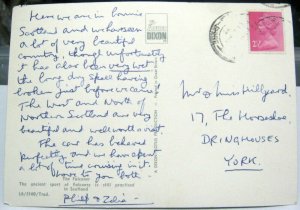 Here we are in bonnie
Scotland and we have seen
a lot of very beautiful
country, though unfortunately
it has also been very wet
the long dry spell having
broken just before we came!
The West and North of
Northern Scotland are very
beautiful and well worth a visit.
The car has behaved
perfectly, and we have spent
a lot of time cruising in it.
love to you both.
The Falconer
The ancient sport of falconry is still practised
in Scotland
DIXON
Mr & Mrs Hillyard,
17, The Horseshoe,
DRINGHOUSES
YORK.